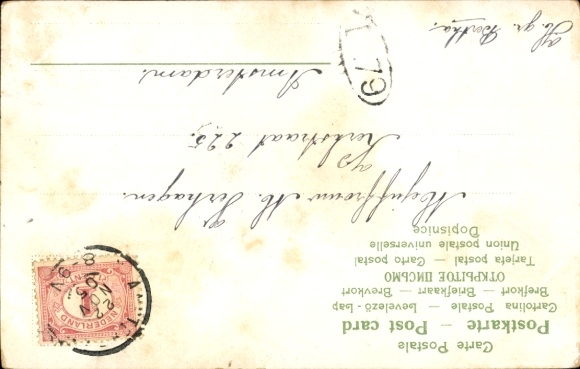 Carte Postale
Postkarte — Post card
Cartolina Postale — Levelező-Lap
Brefkort — Briefkaart — Brevkort
ОТКРЫТОЕ ПИСЬМО
Tarjeta postal — Carto postal
Union postale universelle
Dopisnice
NEDERLAND
Mejuffrouw M. Verhagen.
Kerkstraat 225.
Amsterdam.
79
H. gr. Bertha.